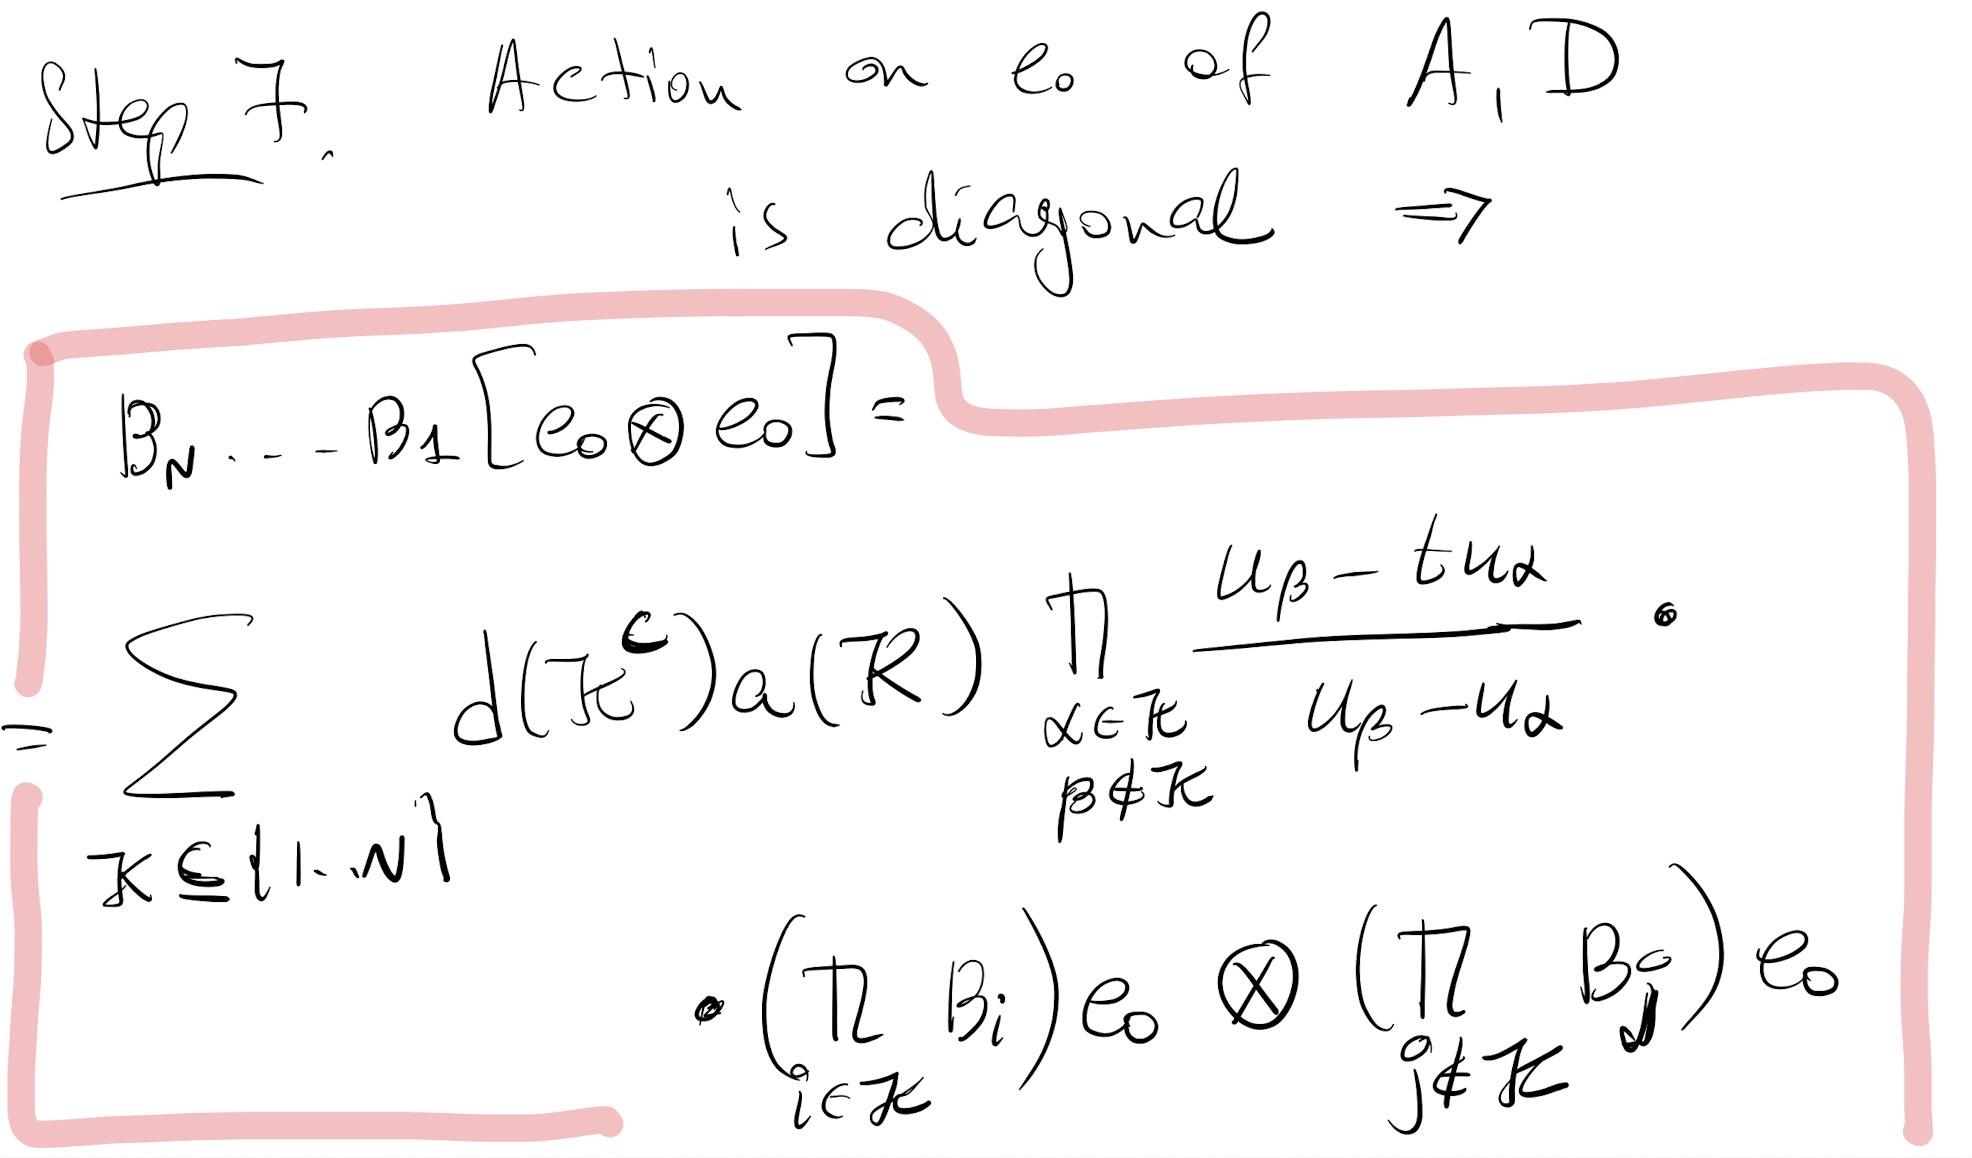 Step 7. Action on e₀ of A, D
is diagonal ⇒
B_N .... B_1 [e₀ ⊗ e₀] =
= ∑_{K ⊆ {1..N}} d(K^c) a(K) ∏_{α∈K, β∉K} (u_β − t u_α)/(u_β − u_α) •
• (∏_{i∈K} B_i) e₀ ⊗ (∏_{j∉K} B_j) e₀